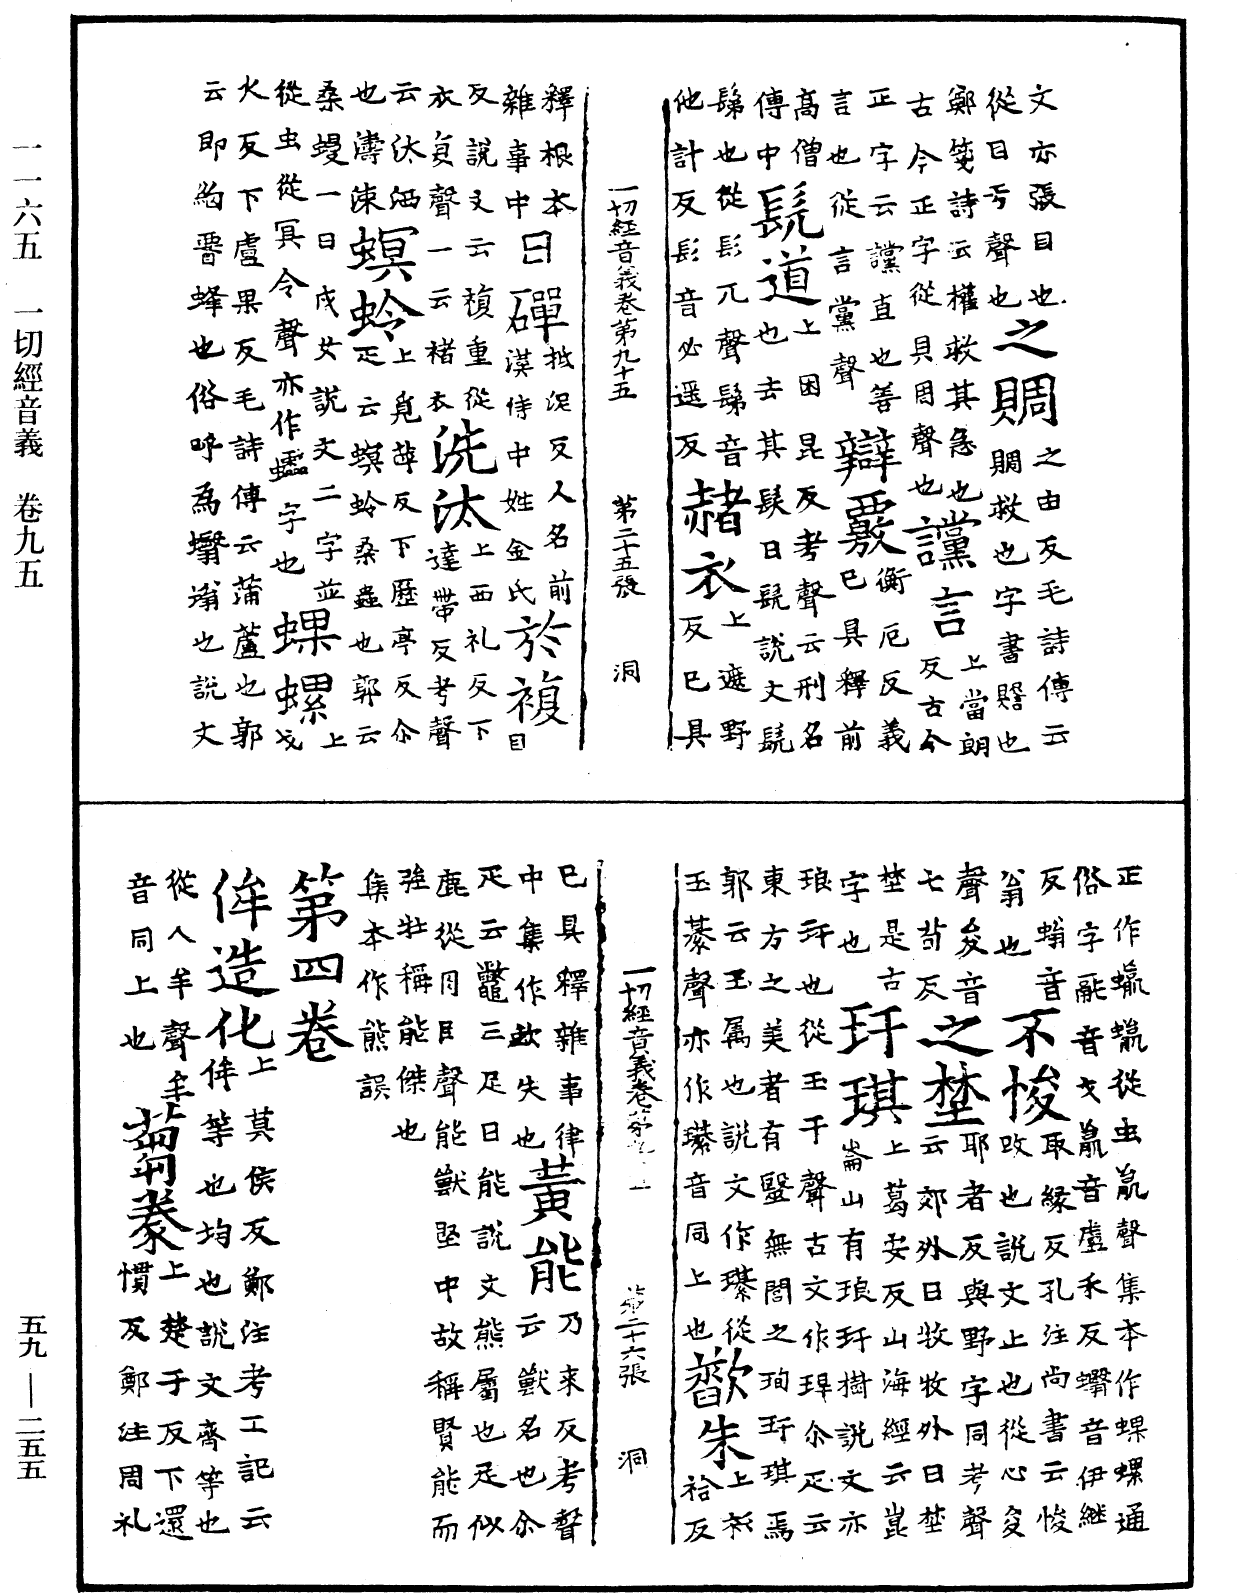 文亦張目也
從目亏聲也之賙之由反毛詩傳云
鄭箋詩云權救其急也賙救也字書賙也
古今正字從貝周聲也讜言上當朗反古今
正字云讜直也善言也從言黨聲辯覈衡厄反義已具釋前
高僧傳中髨道上困昆反考聲云刑名也去其髮曰髨說文髨
髴也從髟兀聲髴音
他計反髟音必遥反赭衣上遮野反已具
一切經音義卷第九十五 第二十五張 洞
釋根本
雜事中日磾抵泥反人名前漢侍中姓金氏於複
反說文云複重從
衣复聲一云褚衣洗汰上西礼反下達帶反考聲
云汰洒
也濤涷螟蛉上覓萍反下歷亭反尒疋云螟蛉桑蟲也郭云
桑蟃一曰戍女說文二字並
從虫從冥令聲亦作蠕字也蜾螺上戈
火反下盧果反毛詩傳云蒲蘆也郭
云即約䍍蜂也俗呼為蠮螉也說文
正作蠣蠃從虫𣎆聲集本作蜾螺通
俗字𣎆音戈𣎆音盧禾反蠮音伊继
反螉音翁也不悛取縁反孔注尚書云悛改也說文止也從心夋
聲夋音七荀反之埜耶者反與野字同考聲云郊外曰牧牧外曰埜
埜是古字也玕琪上葛安反山海經云崑崙山有琅玕樹說文亦
琅玕也從玉干聲古文作玵尒疋云
東方之美者有毉無閭之珣玗琪焉
郭云玉属也說文作璂從
玉綦聲亦作璂音同上也歠朱上衫袷反
一切經音義卷第九十五 第二十六張 洞
已具釋雜事律
中集作歃失也黃能乃来反考聲云獣名也尒
疋云鼈三足曰能說文熊屬也足似
鹿從肉㠯聲能獣堅中故稱賢能而
強牡稱能傑也
集本作熊誤
第四卷
侔造化上莫侯反鄭注考工記云侔等也均也說文齊等也
從人牟聲牟
音同上也蒭豢上楚于反下還慣反鄭注周礼
一一六五 一切經音義 卷九五
五九—二五五